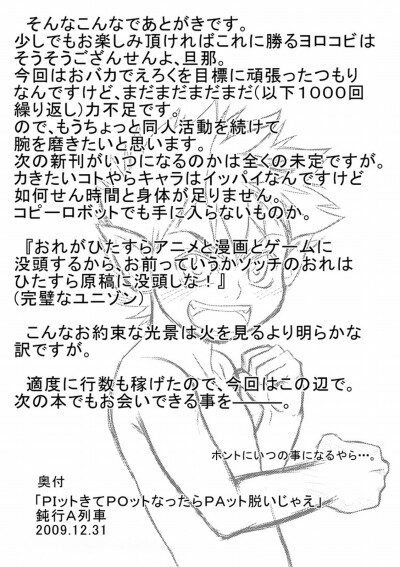 そんなこんなであとがきです。
少しでもお楽しみ頂ければこれに勝るヨロコビは
そうそうござんせんよ、旦那。
今回はおバカでえろくを目標に頑張ったつもり
なんですけど、まだまだまだまだ(以下1000回
繰り返し)力不足です。
ので、もうちょっと同人活動を続けて
腕を磨きたいと思います。
次の新刊がいつになるのかは全くの未定ですが。
カきたいコトやらキャラはイッパイなんですけど
如何せん時間と身体が足りません。
コピーロボットでも手に入らないものか。
『おれがひたすらアニメと漫画とゲームに
没頭するから、お前っていうかソッチのおれは
ひたすら原稿に没頭しな!』
(完璧なユニゾン)
こんなお約束な光景は火を見るより明らかな
訳ですが。
適度に行数も稼げたので、今回はこの辺で。
次の本でもお会いできる事を―――。
ホントにいつの事になるやら…。
奥付
「PIットきてPOットなったらPAット脱いじゃえ」
鈍行A列車
2009.12.31